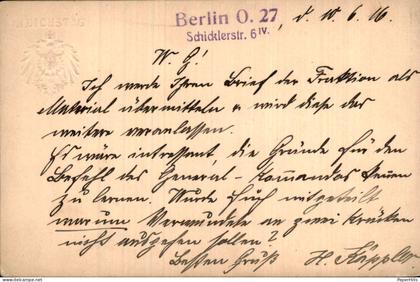 REICHSTAG
Berlin O. 27, d. 10.6.16.
Schicklerstr. 6 IV.
W. G!
Ich werde Ihren Brief der Fraktion als
Material übermitteln u. wird diese das
weitere veranlassen.
Es wäre intressant, die Gründe für den
Befehl des General-Kommandos kennen
zu lernen. Wurde Euch mitgeteilt
warum Verwundete an zwei Krücken
nicht ausgehen sollen?
Besten Gruß H. Käppler